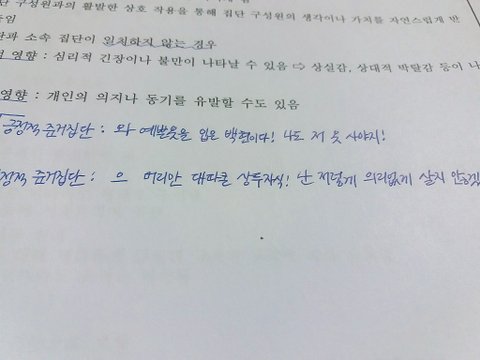 단 구성원과의 활발한 상호 작용을 통해 집단 구성원의 생각이나 가치를 자연스럽게 받
과 소속 집단이 일치하지 않는 경우
영향 : 심리적 긴장이나 불만이 나타날 수 있음 ⇨ 상실감, 상대적 박탈감 등이 나
영향 : 개인의 의지나 동기를 유발할 수도 있음
긍정적 준거집단 : 와 예쁜옷을 입은 백현이다! 나도 저 옷 사야지!
정적 준거집단 : 으 머리만 대따큰 상투자식! 난 저렇게 의리없게 살지 안하겠